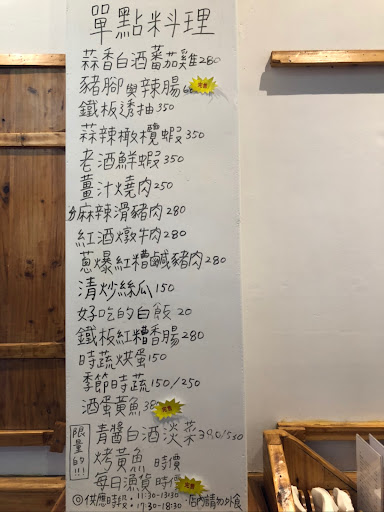 單點料理
蒜香白酒蕃茄雞280
豬腳與辣腸
完售
鐵板透抽350
蒜辣橄欖蝦350
老酒鮮蝦350
薑汁燒肉250
麻辣滑豬肉280
紅酒燉牛肉280
蔥爆紅糟鹹豬肉280
清炒絲瓜150
好吃的白飯20
鐵板紅糟香腸280
時蔬烘蛋150
季節時蔬150/250
酒蛋黃魚
完售
限量的!!!
青醬白酒淡菜390/530
烤黃魚 時價
每日漁貨 時價
完售
供應時段:11:30-13:30
17:30-18:30
店內請勿外食